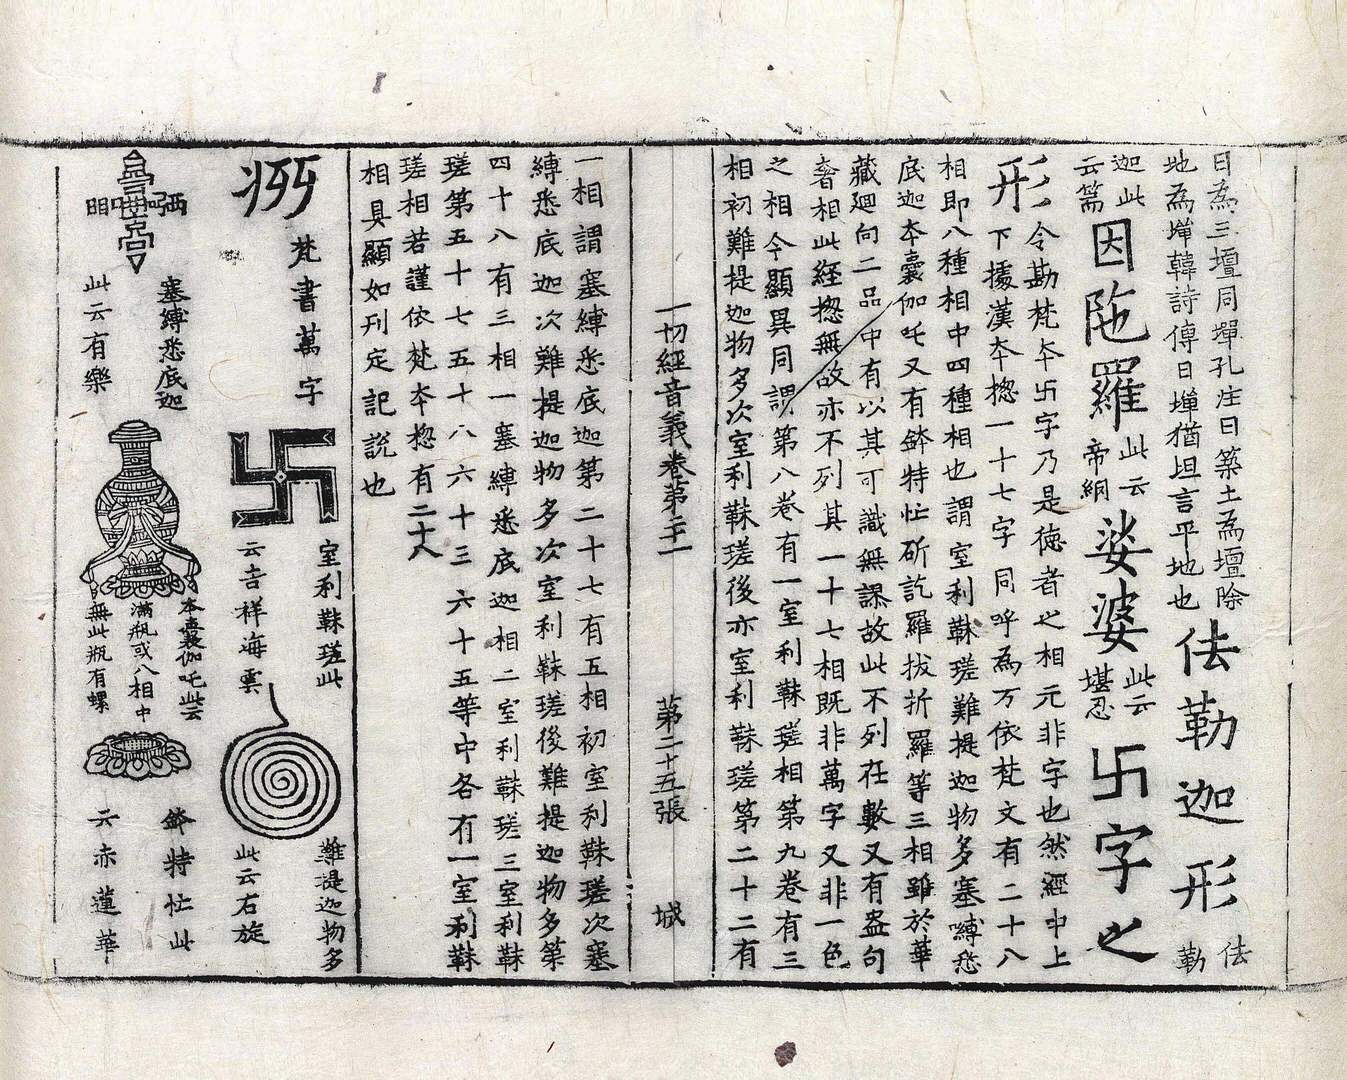 曰為三壇同墠孔注曰築土為壇除
地為墠韓詩傳曰墠猶坦言平地也
佉勒迦形 佉勒
迦此云篅 因陁羅 此云帝網 娑婆 此云堪忍 卐字之
形 令勘梵本卐字乃是德者之相元非字也然經中上
下據漢本惣一十七字同呼為万依梵文有二十八
相即八種相中四種相也謂室利靺瑳難提迦物多塞嚩悉
底迦本囊伽吒又有鉢特忙斫訖羅拔折羅等三相雖於華
藏廻向二品中有以其可識無謬故此不列在數又有盎句
奢相此経惣無故亦不列其一十七相既非萬字又非一色
之相今顯異同謂第八卷有一室利靺瑳相第九卷有三
相初難提迦物多次室利靺瑳後亦室利靺瑳第二十二有
一切經音義卷第二十一 第二十五張 城
一相謂塞縛悉底迦第二十七有五相初室利靺瑳次塞
縛悉底迦次難提迦物多次室利靺瑳後難提迦物多第
四十八有三相一塞縛悉底迦相二室利靺瑳三室利靺
瑳第五十七五十八六十三六十五等中各有一室利靺
瑳相若謹依梵本惣有二十八
相具顯如刊定記說也
梵書萬字
卐
室利靺瑳此
云吉祥海雲
難提迦物多
此云右旋
塞縛悉底迦
此云有樂
本囊伽吒此云
滿瓶或八相中
無此瓶有螺
鉢特忙此
云赤蓮華